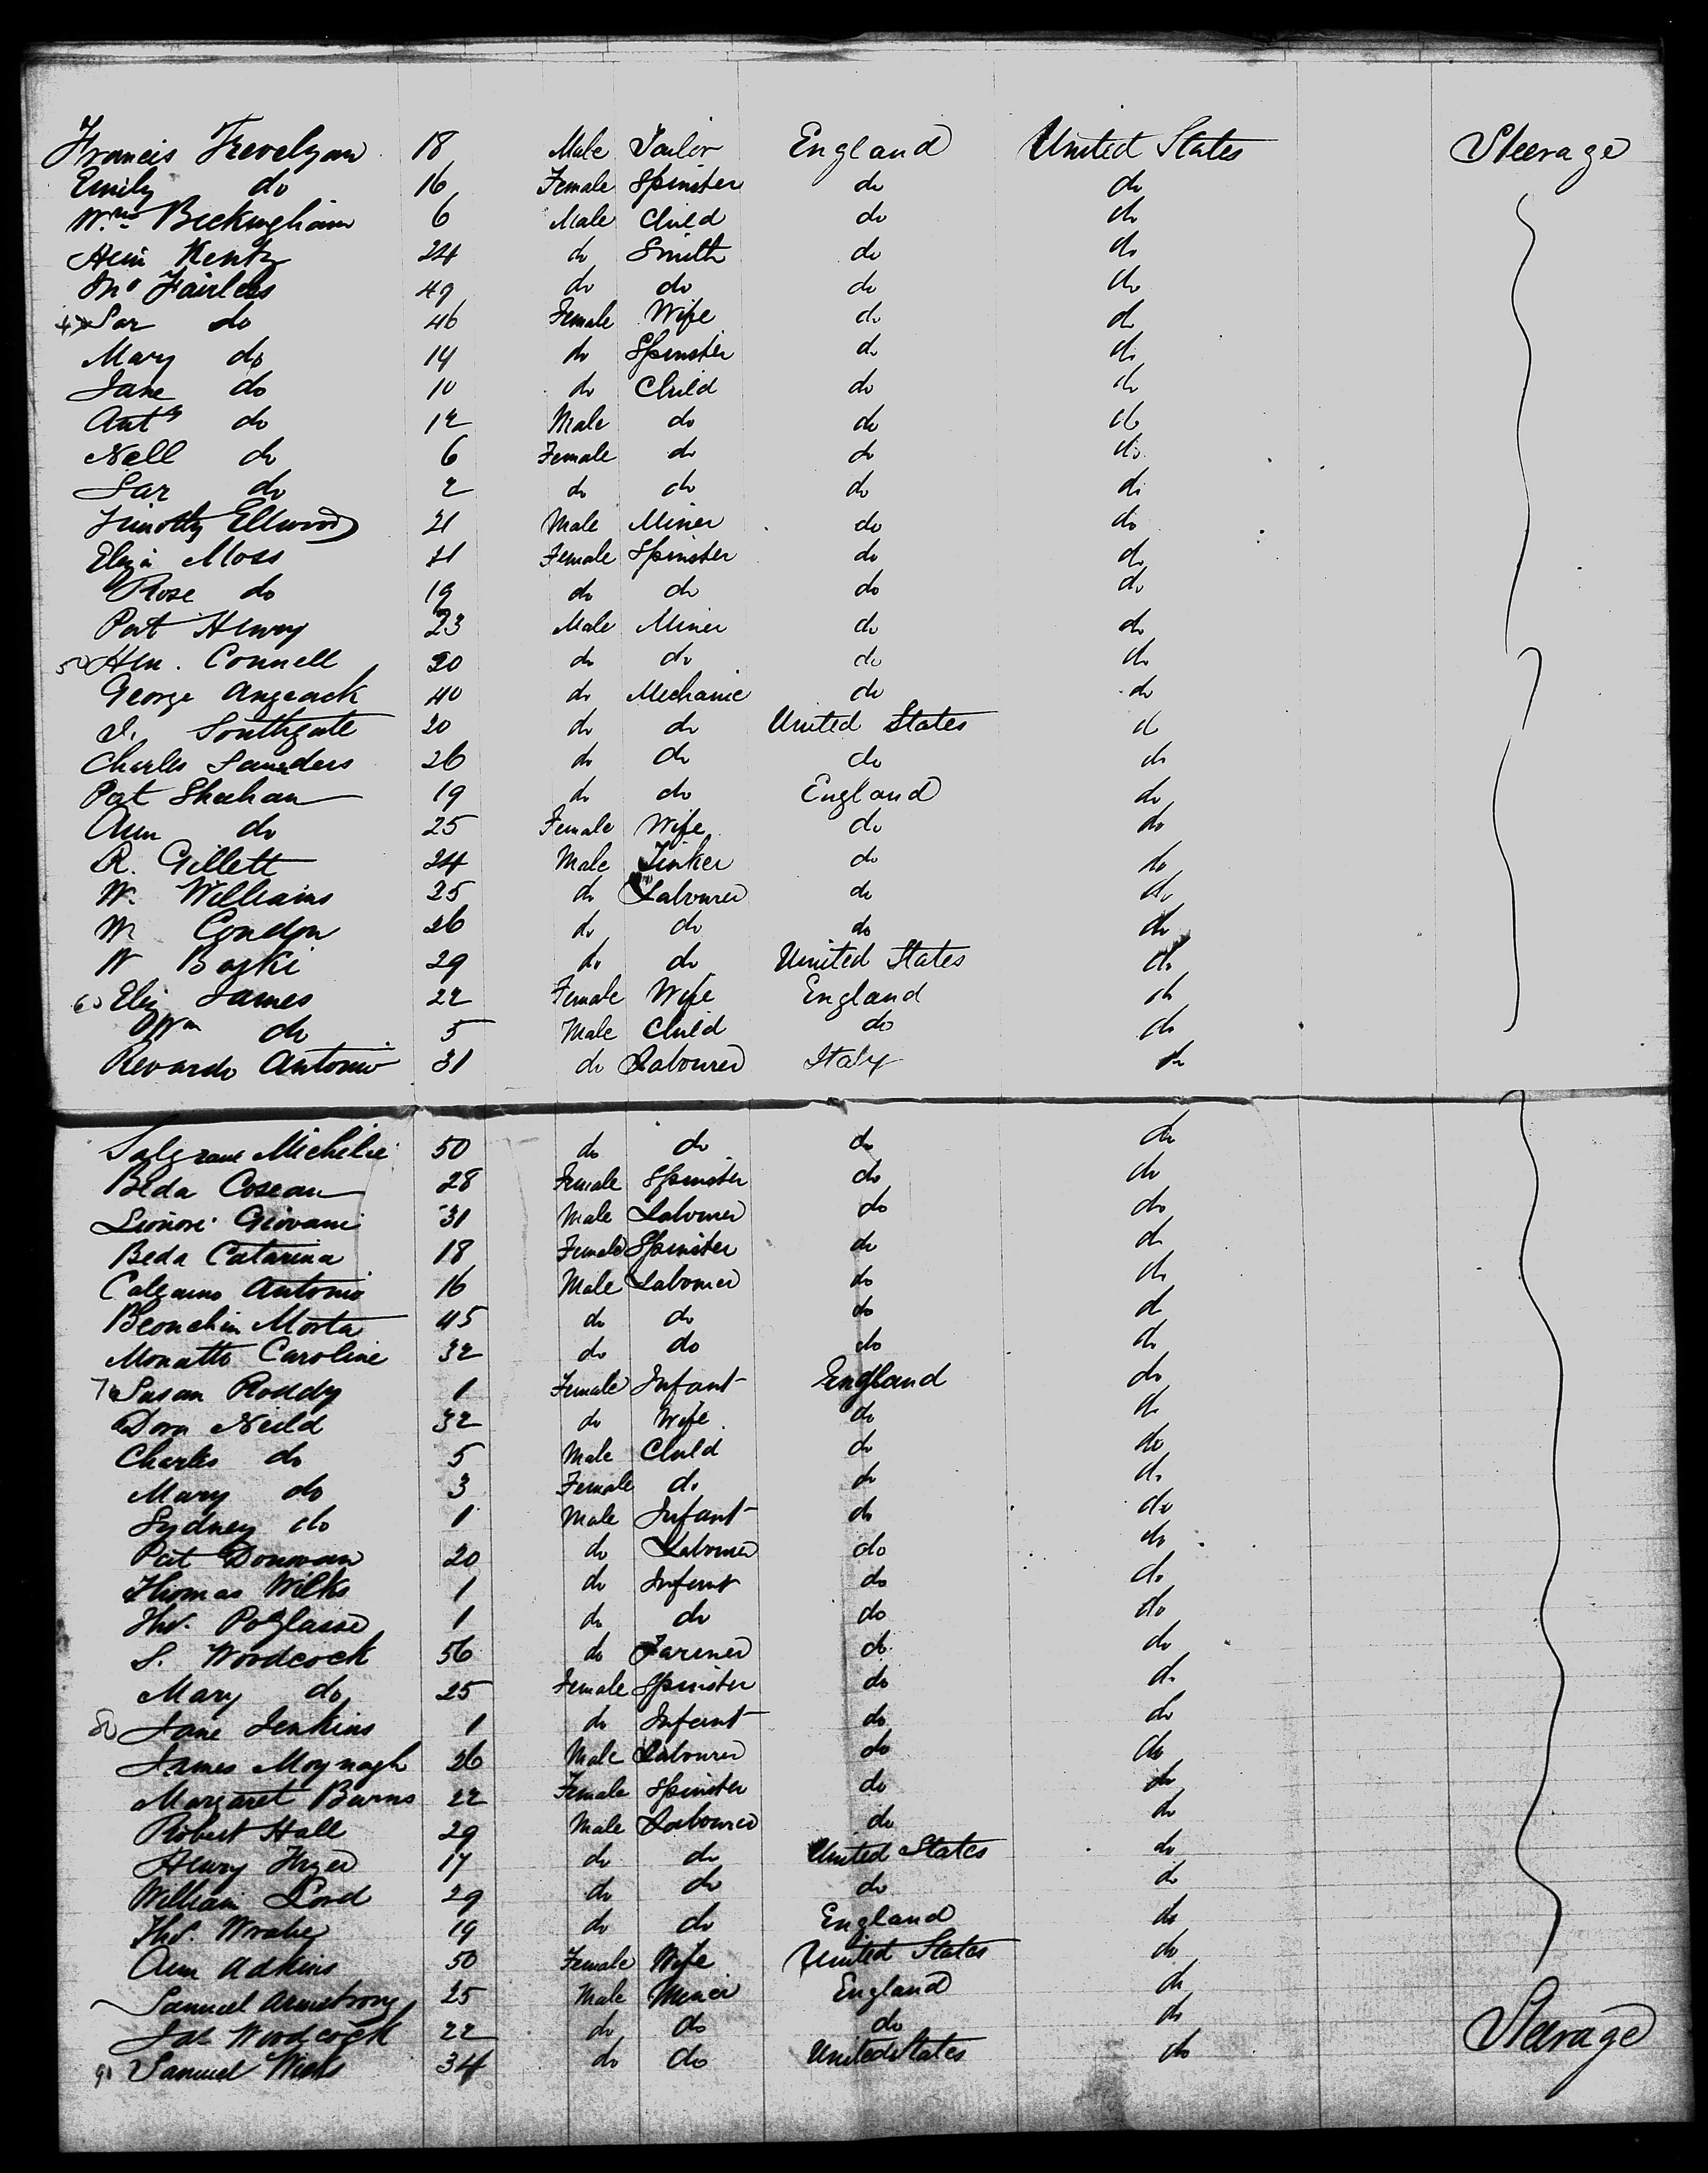 Francis Trevelyan 18 Male Tailor England United States Steerage
Emily do 16 Female Spinster do do
Wm Beckingham 6 Male Child do do
Hein Kentz 24 do Smith do do
Jno Fairless 49 do do do do
Sar do 46 Female Wife do do
Mary do 14 do Spinster do do
Jane do 10 do Child do do
Anty do 12 Male do do do
Nell do 6 Female do do do
Sar do 2 do do do do
Timothy Ellwood 21 Male Miner do do
Eliza Moss 21 Female Spinster do do
Rose do 19 do do do do
Pat Henry 23 Male Miner do do
50 Hen. Connell 20 do do do do
George Angeack 40 do Mechanic do do
J. Southgate 20 do do United States do
Charles Saunders 26 do do do do
Pat Sheehan 19 do do England do
Ann do 25 Female Wife do do
R. Gillett 24 Male Tinker do do
W. Williams 25 do Labourer do do
M Condon 26 do do do do
W Boski 29 do do United States do
60 Eliz James 22 Female Wife England do
Wm do 5 Male Child do do
Revardo Antonio 31 do Labourer Italy do
Michelie 50 do do do do
Beda Cosean 28 Female Spinster do do
Lionori Giovani 31 Male Labourer do do
Beda Catarina 18 Female Spinster do do
Calgaino Antonio 16 Male Labourer do do
Beonchin Mosta 45 do do do do
Monatto Caroline 32 do do do do
70 Susan Roddy 1 Female Infant England do
Dora Neild 32 do Wife do do
Charles do 5 Male Child do do
Mary do 3 Female do do do
Sydney do 1 Male Infant do do
Pat Donovan 20 do Labourer do do
Thomas Wilks 1 do Infant do do
Thos. Poglase 1 do do do do
S. Woodcock 56 do Farmer do do
Mary do 25 Female Spinster do do
80 Jane Jenkins 1 do Infant do do
James Moynagh 26 Male Labourer do do
Margaret Burns 22 Female Spinster do do
Robert Hall 29 Male Labourer do do
Henry Fryer 17 do do United States do
William Lord 29 do do do do
Thos. Wraley 19 do do England do
Ann Adkins 50 Female Wife United States do
Samuel Armstrong 25 Male Miner England do
Jas Woodcock 22 do do do do Steerage
90 Samuel Wicks 34 do do United States do